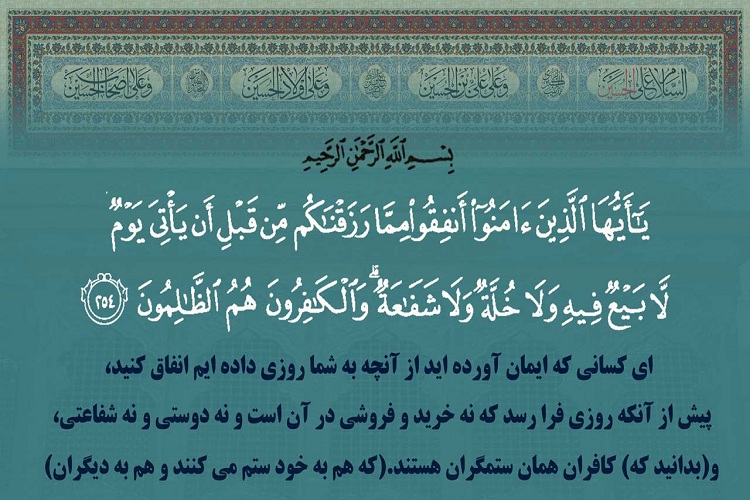 السلام علی الحسین وعلی علی بن الحسین وعلی اولاد الحسین وعلی اصحاب الحسین
بِسْمِ ٱللَّهِ ٱلرَّحْمَٰنِ ٱلرَّحِيمِ
يَـٰٓأَيُّهَا ٱلَّذِينَ ءَامَنُوٓا۟ أَنفِقُوا۟ مِمَّا رَزَقْنَـٰكُم مِّن قَبْلِ أَن يَأْتِىَ يَوْمٌ
لَّا بَيْعٌ فِيهِ وَلَا خُلَّةٌ وَلَا شَفَـٰعَةٌ ۗ وَٱلْكَـٰفِرُونَ هُمُ ٱلظَّـٰلِمُونَ ﴿٢٥٤﴾
ای کسانی که ایمان آورده اید از آنچه به شما روزی داده ایم انفاق کنید،
پیش از آنکه روزی فرا رسد که نه خرید و فروشی در آن است و نه دوستی و نه شفاعتی،
و(بدانید که) کافران همان ستمگران هستند.(که هم به خود ستم می کنند و هم به دیگران)